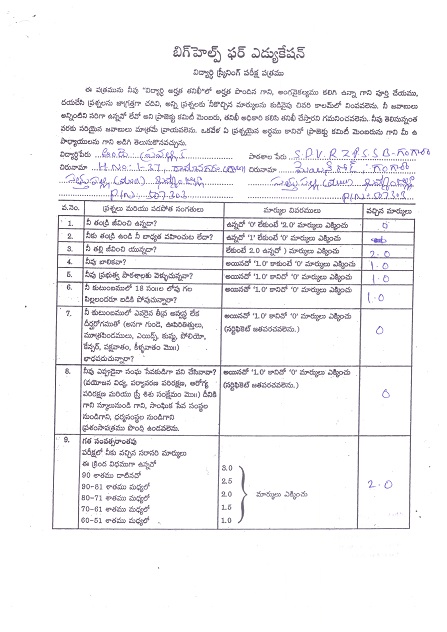 బిగ్‌హెల్ప్ ఫర్ ఎడ్యుకేషన్
విద్యార్థి స్క్రీనింగ్ పరీక్ష పత్రము
ఈ పత్రమును నీవు "విద్యార్థి అర్హత తనిఖీ"లో అర్హత పొందిన గాని, అంగవైకల్యము కలిగి ఉన్నా గాని పూర్తి చేయుము,
దయచేసి ప్రశ్నలను జాగ్రత్తగా చదివి, అన్ని ప్రశ్నలకు నీకొచ్చిన మార్కులను కుడివైపు చివరి కాలమ్‌లో నింపవలెను. నీ జవాబులు
అన్నింటిని సరిగా ఉన్నవో లేవో అని ప్రాజెక్టు కమిటీ మెంబరు, తనిఖీ అధికారి కలిసి తనిఖీ చేస్తారని గమనించవలెను. నీవు తెలిసున్నంత
వరకు సరియైన జవాబులు మాత్రమే వ్రాయవలెను. ఒకవేళ ఏ ప్రశ్నయైన అర్థము కానిదో ప్రాజెక్టు కమిటీ మెంబరును గాని మీ ఉ
పాధ్యాయులను గాని అడిగి తెలుసుకొనవచ్చును.
విద్యార్థిపేరు పాఠశాల పేరు S.P.V.R.Z.P.S.S.B-గంగారం
చిరునామా H.NO:1-37, చిరునామా గంగారం
PIN: 507303 PIN: 507303
వ.నెం. ప్రశ్నలు మరియు పదపోత సంగతులు మార్కుల వివరములు వచ్చిన మార్కులు
1. నీ తండ్రి జీవించి ఉన్నదా? ఉన్నదో '0' లేకుంటే '2.0' మార్కులు ఎక్కించు 0
నీకు తండ్రి ఉండి నీ బాధ్యత వహించుట లేదా? ఉన్నదో '1' లేకుంటే '0' మార్కులు ఎక్కించు
3. నీ తల్లి జీవించి యున్నదా? లేకుంటే 2.0 ఉన్నదో ) మార్కులు ఎక్కించు 2.0
4. నీవు బాలికవా? అయినచో '1.0' కాకుంటే '0' మార్కులు ఎక్కించు 1.0
5. నీవు ప్రభుత్వ పాఠశాలకు వెళ్ళుచున్నావా? అయినచో '1.0' కానిదో '0' మార్కులు ఎక్కించు 1.0
6. నీ కుటుంబములో 18 సం॥ల లోపు గల అయినచో '1.0' కానిదో '0' మార్కులు ఎక్కించు 1.0
పిల్లలందరూ బడికి పోవుచున్నారా?
7. నీ కుటుంబములో ఎవరైన తీవ్ర అస్వస్థ లేక అయినచో '1.0' కానిదో '0' మార్కులు ఎక్కించు 0
దీర్ఘరోగముతో (అనగా గుండె, ఊపిరితిత్తులు, (సర్టిఫికెట్ జతపరచవలెను.)
మూత్రపిండములు, ఎయిడ్స్, కుష్ఠు, పోలియో,
కేన్సర్, పక్షవాతం, కీళ్ళవాతం మొ॥)
బాధపడుచున్నారా?
8. నీవు ఎప్పుడైనా సంఘ సేవకుడిగా పని చేసినావా? అయినచో '1.0' కానిదో '0' మార్కులు ఎక్కించు 0
(వయోజన విద్య, పర్యావరణ పరిరక్షణ, ఆరోగ్య (సర్టిఫికెట్ జతపరచవలెను.)
పరిరక్షణ మరియు స్త్రీ శిశు సంక్షేమం మొ॥) దీనికి
గాని స్కూలునుండి గాని, సాంఘిక సేవ సంస్థల
నుండిగాని, ధర్మసంస్థల నుండిగాని
ప్రశంసాపత్రము పొంది ఉండవలెను.
9. గత సంవత్సరాంతపు
పరీక్షలో నీకు వచ్చిన సరాసరి మార్కులు
ఈ క్రింద విధముగా ఉన్నచో 3.0
90 శాతము దాటినచో 2.5
90-81 శాతము మధ్యలో 2.0 మార్కులు ఎక్కించు 2.0
80-71 శాతము మధ్యలో 1.5
70-61 శాతము మధ్యలో 1.0
60-51 శాతము మధ్యలో